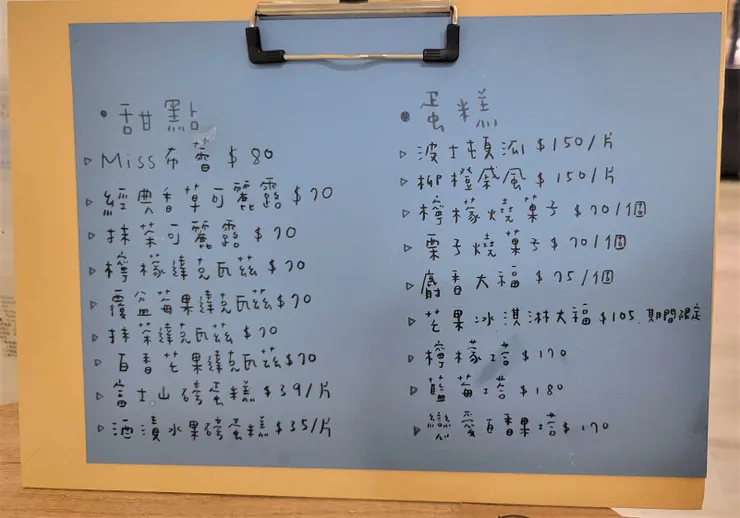 •甜點
▷Miss布蕾 $80
▷經典香草可麗露 $70
▷抹茶可麗露 $70
▷檸檬達克瓦茲 $70
▷覆盆莓果達克瓦茲$70
▷抹茶達克瓦茲 $70
▷百香芒果達克瓦茲$70
▷富士山磅蛋糕 $39/片
▷酒漬水果磅蛋糕 $35/片
•蛋糕
▷波士頓派 $150/片
▷柳橙戚風 $150/片
▷檸檬燒菓子 $70/個
▷栗子燒菓子 $70/個
▷麝香大福 $75/個
▷芒果冰淇淋大福 $105 期間限定
▷檸檬塔 $170
▷藍莓塔 $180
▷戀愛百香果塔 $170